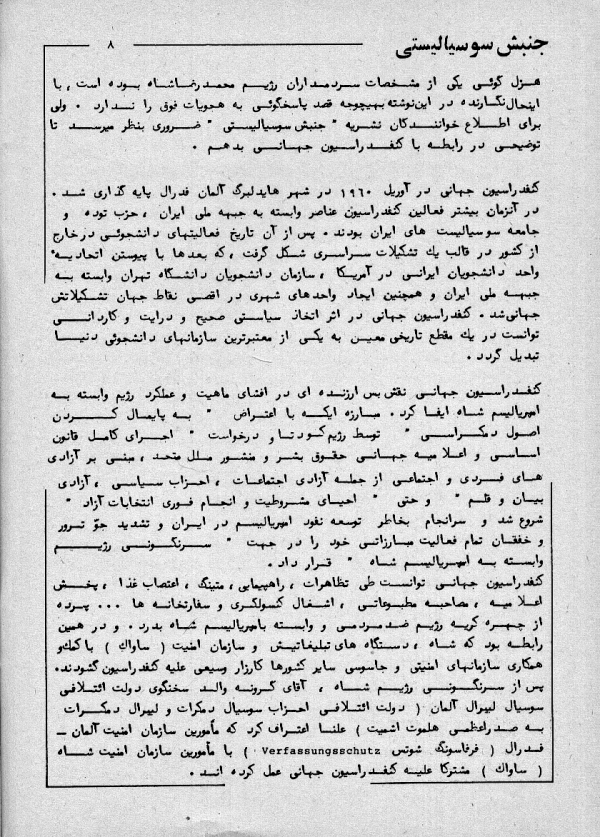 جنبش سوسیالیستی
۸
هزل گوئی یکی از مشخصات سردمداران رژیم محمدرضاشاه بوده است ، با
اینحال نگارنده در این‌نوشته بهیچوجه قصد پاسخگوئی به هجویات فوق را ندارد . ولی
برای اطلاع خوانندگان نشریه " جنبش سوسیالیستی " ضروری بنظر میرسد تا
توضیحی در رابطه با کنفدراسیون جهانی بدهم .
کنفدراسیون جهانی در آوریل ۱۹۶۰ در شهر هایدلبرگ آلمان فدرال پایه گذاری شد .
در آنزمان بیشتر فعالین کنفدراسیون عناصر وابسته به جبهه ملی ایران ، حزب توده و
جامعه سوسیالیست های ایران بودند . پس از آن تاریخ فعالیتهای دانشجوئی در خارج
از کشور در قالب یك تشکیلات سراسری شکل گرفت ، که بعدها با پیوستن اتحادیه
واحد دانشجویان ایرانی در آمریکا ، سازمان دانشجویان دانشگاه تهران وابسته به
جبهه ملی ایران و همچنین ایجاد واحدهای شهری در اقصی نقاط جهان تشکیلاتش
جهانی‌شد . کنفدراسیون جهانی در اثر اتخاذ سیاستی صحیح و درایت و کاردانی
توانست در یك مقطع تاریخی معین به یکی از معتبرترین سازمانهای دانشجوئی دنیا
تبدیل گردد .
کنفدراسیون جهانی نقش بس ارزنده ای در افشای ماهیت و عملکرد رژیم وابسته به
امپریالیسم شاه ایفا کرد . مبارزه ایکه با اعتراض " به پایمال کردن
اصول دمکراسی " توسط رژیم کودتا و درخواست " اجرای کامل قانون
اساسی و اعلامیه جهانی حقوق بشر و منشور ملل متحد ، مبنی بر آزادی
های فردی و اجتماعی از جمله آزادی اجتماعات ، احزاب سیاسی ، آزادی
بیان و قلم " و حتی " احیای مشروطیت و انجام فوری انتخابات آزاد "
شروع شد و سرانجام بخاطر توسعه نفوذ امپریالیسم در ایران و تشدید جوّ ترور
و خفقان تمام فعالیت مبارزاتی خود را در جهت " سرنگونی رژیم
وابسته به امپریالیسم شاه " قرار داد .
کنفدراسیون جهانی توانست طی تظاهرات ، راهپیمایی ، متینگ ، اعتصاب غذا ، پخش
اعلامیه ، مصاحبه مطبوعاتی ، اشغال کنسولگری و سفارتخانه ها ... پرده
از چهره کریه رژیم ضدمردمی و وابسته بامپریالیسم شاه بدرد . و در همین
رابطه بود که شاه ، دستگاه های تبلیغاتیش و سازمان امنیت ( ساواك ) با کمك و
همکاری سازمانهای امنیتی و جاسوسی سایر کشورها کارزار وسیعی علیه کنفدراسیون گشودند.
پس از سرنگونی رژیم شاه ، آقای گرونه والد سخنگوی دولت ائتلافی
سوسیال لیبرال آلمان ( دولت ائتلافی احزاب سوسیال دمکرات و لیبرال دمکرات
به صدراعظمی هلموت اشمیت ) علنا اعتراف کرد که مأمورین سازمان امنیت آلمان ـ
فدرال ( فرفاسونگ شوتس Verfassungsschutz ) با مأمورین سازمان امنیت شاه
( ساواك ) مشترکا علیه کنفدراسیون جهانی عمل کرده اند .